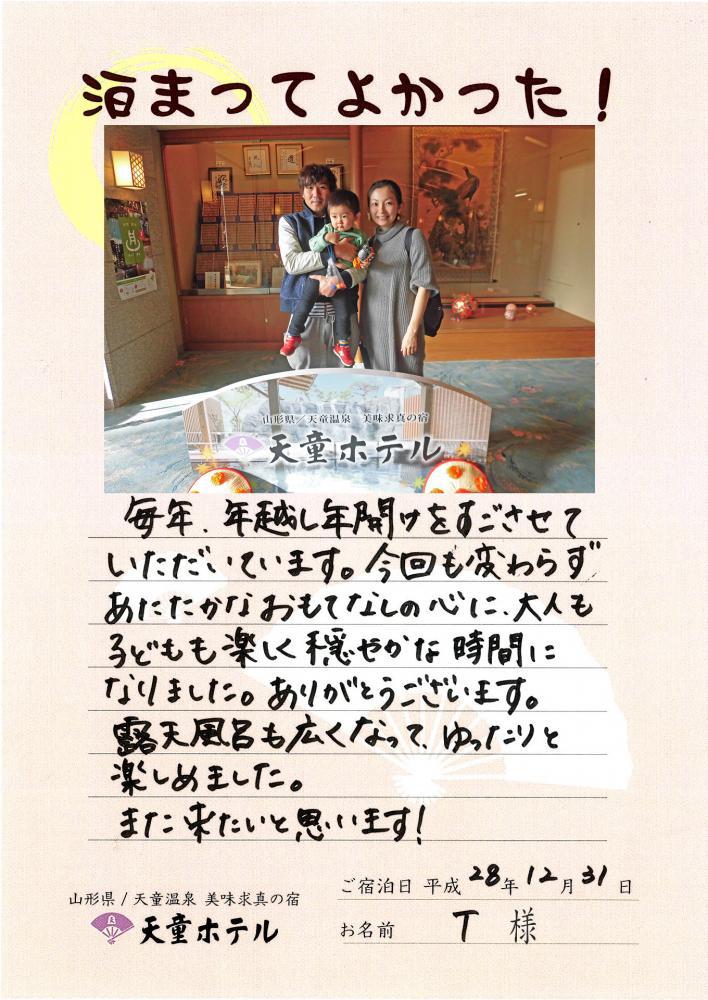 泊まってよかった！
山形県／天童温泉　美味求真の宿
天童ホテル
毎年、年越し年開けをすごさせて
いただいています。今回も変わらず
あたたかなおもてなしの心に、大人も
子どもも楽しく穏やかな時間に
なりました。ありがとうございます。
露天風呂も広くなって、ゆったりと
楽しめました。
また来たいと思います！
ご宿泊日 平成 28年 12月 31日
山形県 / 天童温泉 美味求真の宿
天童ホテル
お名前 T 様